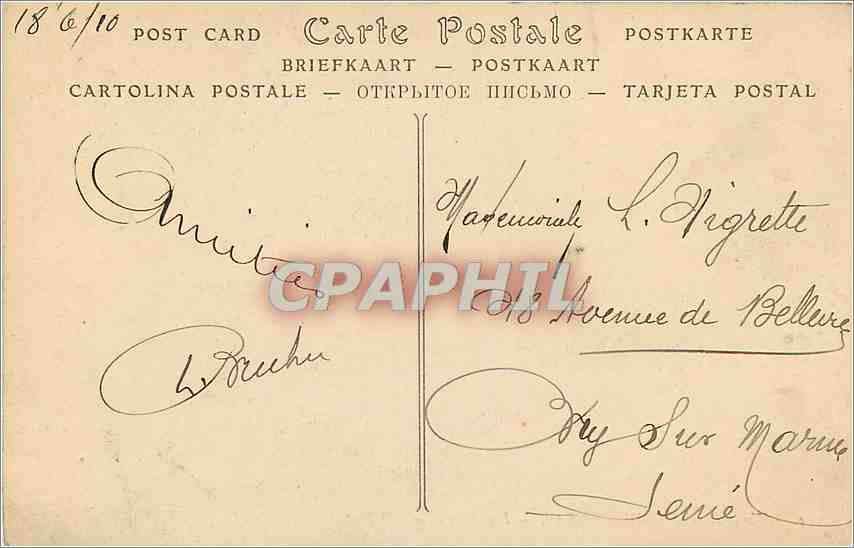 18 6/10
POST CARD Carte Postale POSTKARTE
BRIEFKAART — POSTKAART
CARTOLINA POSTALE — ОТКРЫТОЕ ПИСЬМО — TARJETA POSTAL
Amitiés
Mademoiselle L. Aigrette
18 Avenue de Bellevue
Bry Sur Marne
Seine
CPAPHIL